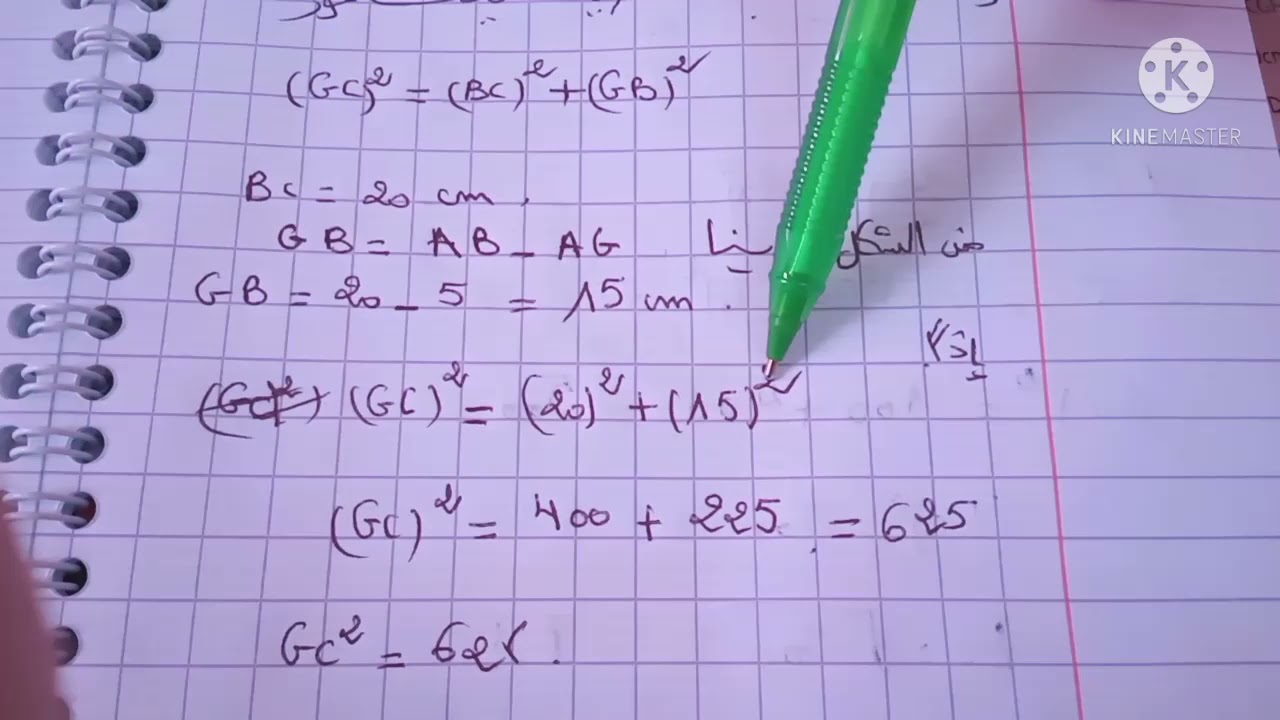 (GC)² = (BC)² + (GB)²
KINEMASTER
BC = 20 cm,
GB = AB - AG من الشكل لينا
GB = 20 - 5 = 15 cm.
إذا
(GC)² = (20)² + (15)²
(GC)² = 400 + 225 = 625
GC² = 625.